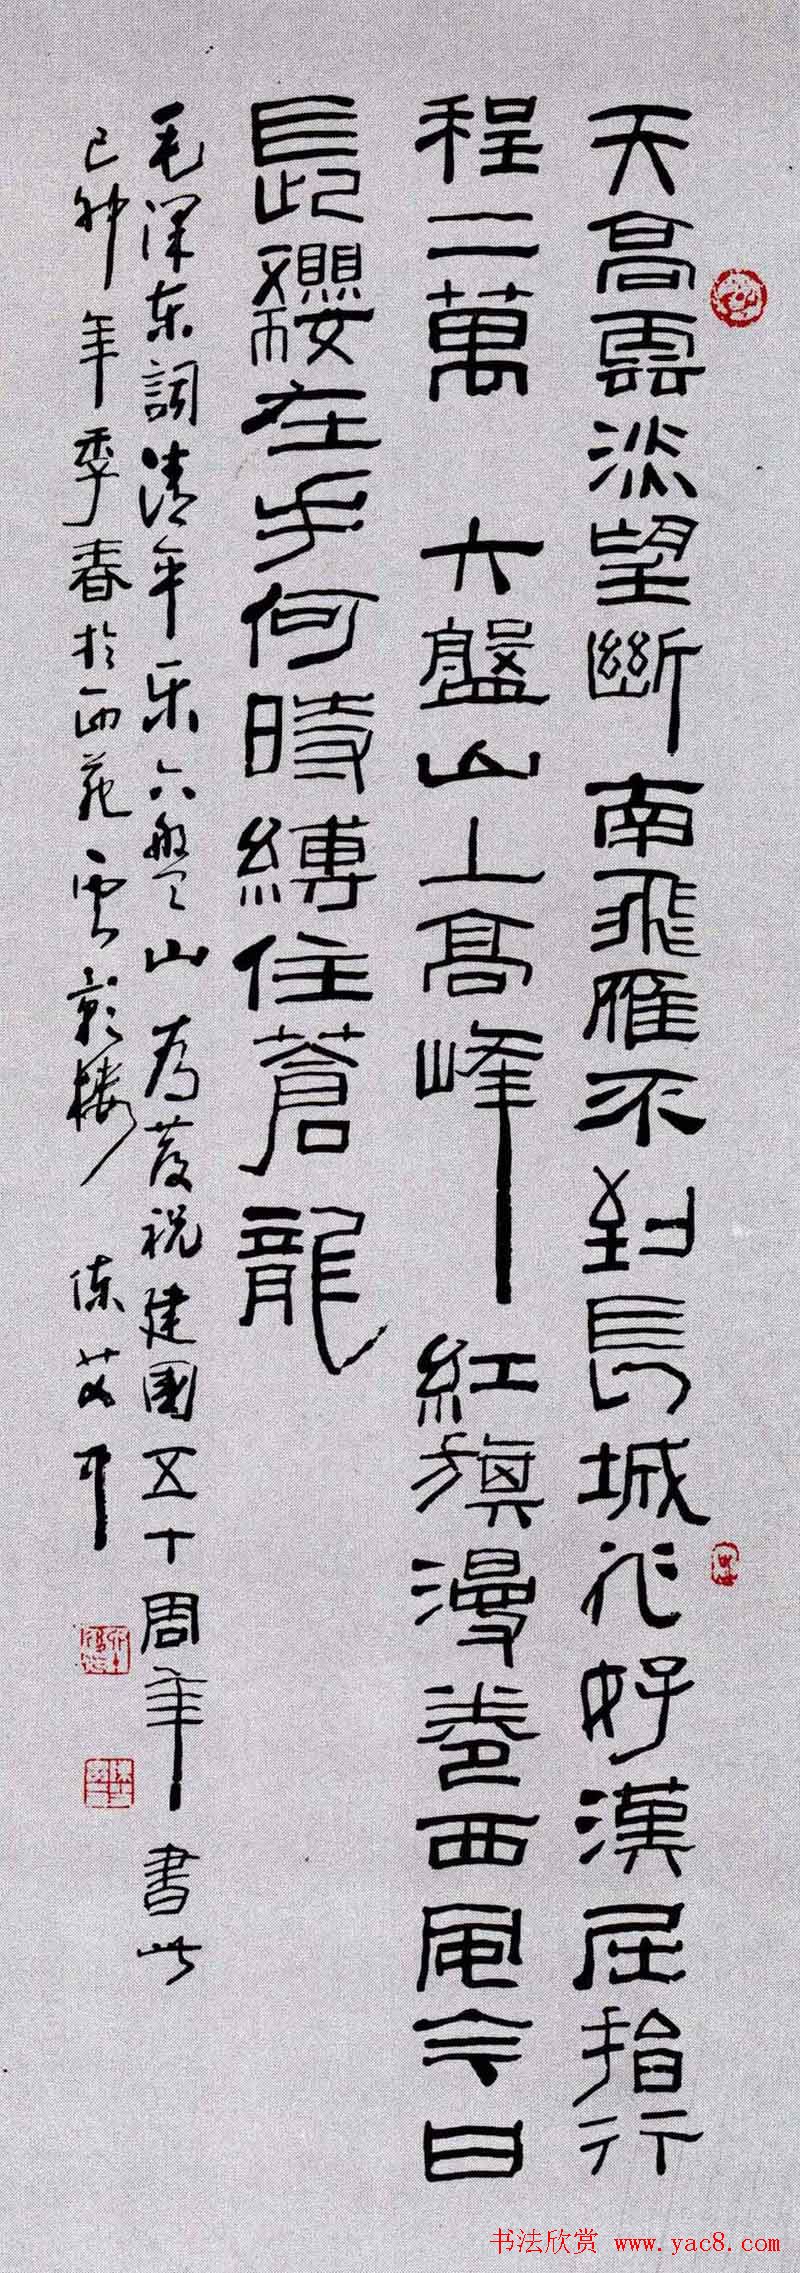 天高雲淡望斷南飛雁不到長城非好漢屈指行
程二萬 六盤山上高峰紅旗漫卷西風今日
長纓在手何時縛住蒼龍
毛澤东詞清平乐六盤山 为慶祝建國五十周年書此
己卯年季春於西苑雲彰楼 陈艾中
书法欣赏 www.yac8.com